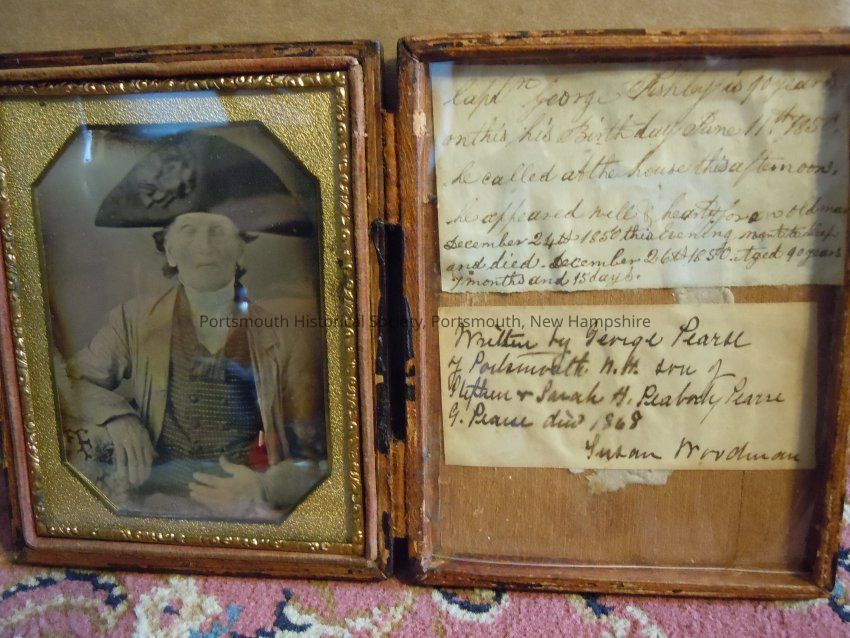 Captn George Fishley is 90 years
on this his Birth day June 11th 1850.
he called at the house this afternoon.
he appeared well & hearty for an old man
December 24th 1850 this evening
and died. December 26th 1850. Aged 90 years
months and 15 days.
Portsmouth Historical Society, Portsmouth, New Hampshire
Written by George Pearse
of Portsmouth N.H. son of
Stephen & Sarah H. Peabody Pearse
G. Pearse died 1868
Susan Woodman